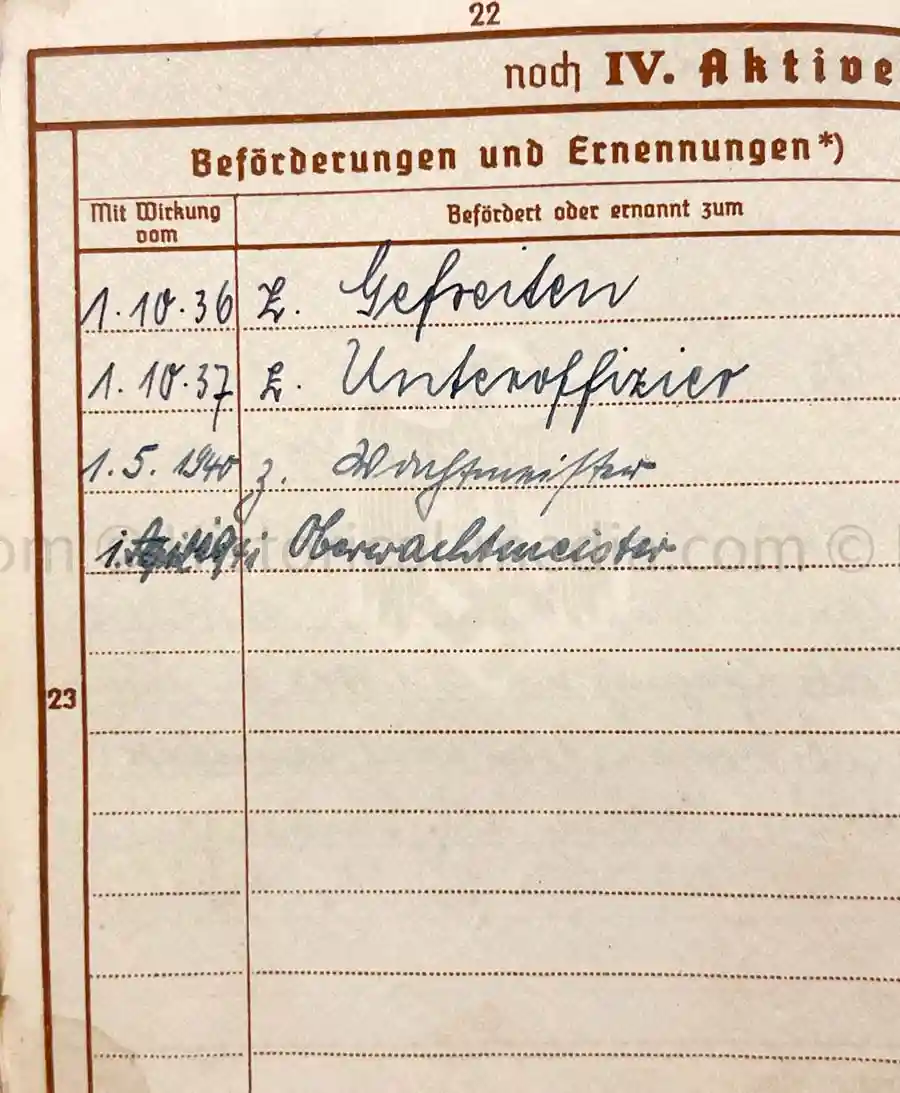 22
noch IV. Aktive
Beförderungen und Ernennungen*)
Mit Wirkung vom
Befördert oder ernannt zum
1.10.36 z. Gefreiten
1.10.37 z. Unteroffizier
1.5.1940 z. Wachtmeister
1. Oberwachtmeister
23